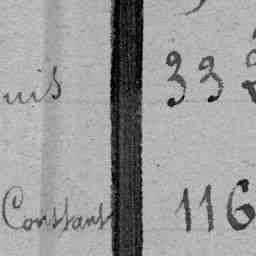 uis 33
Constant 116